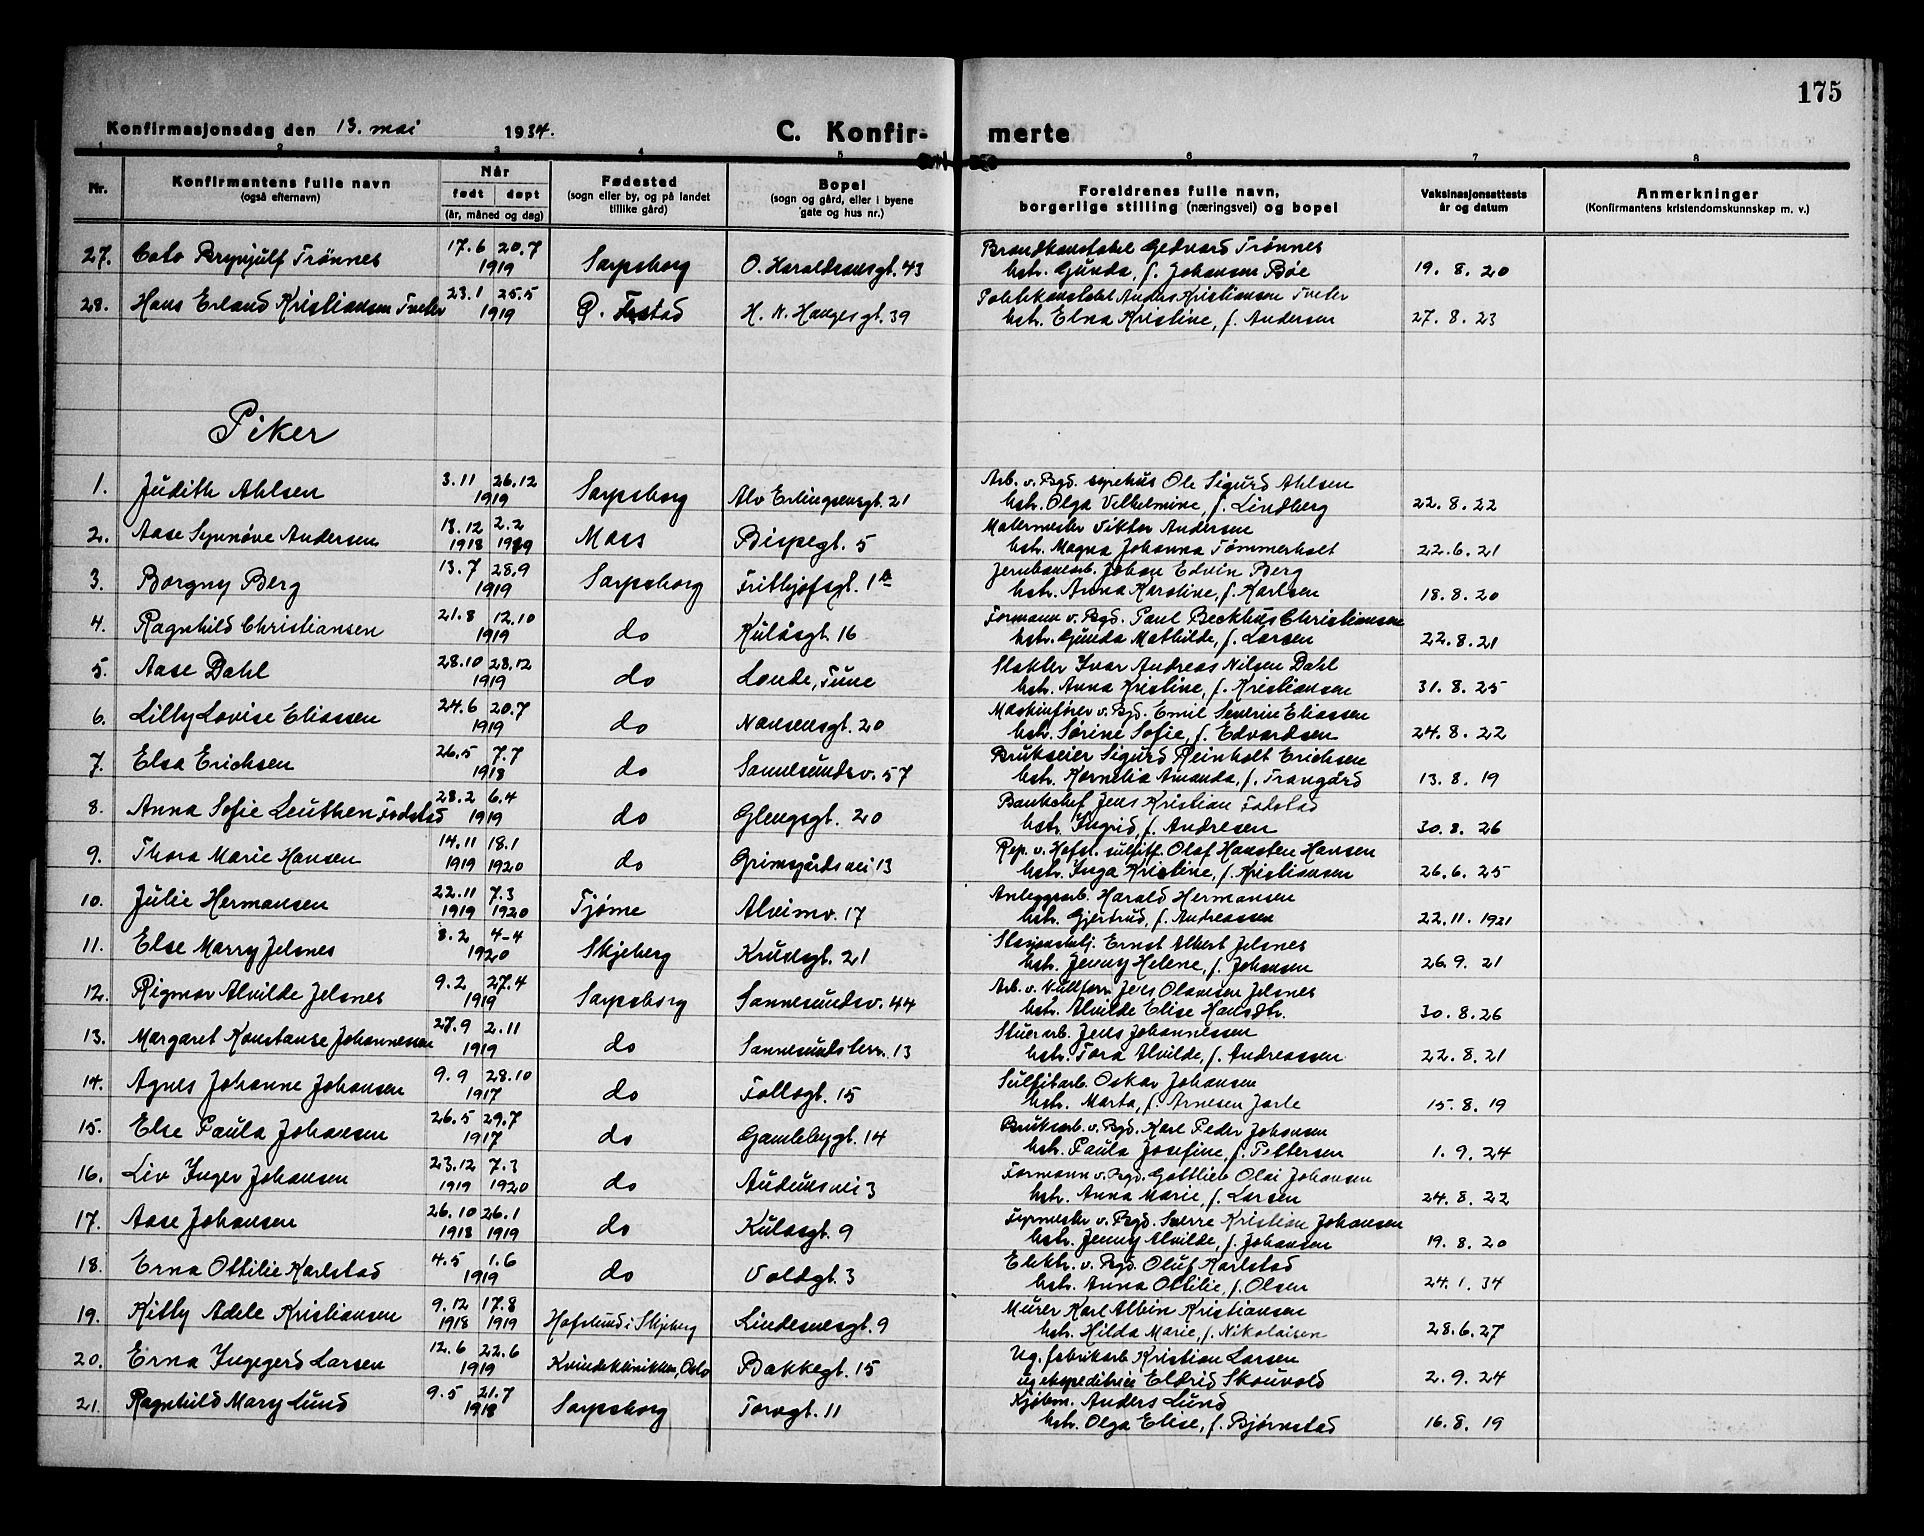 175
Konfirmasjonsdag den 13. mai 1934. C. Konfir- merte
1 2 3 4 5 6 7 8
Nr. Konfirmantens fulle navn (også efternavn) Når født døpt (år, måned og dag) Fødested (sogn eller by, og på landet tillike gård) Bopel (sogn og gård, eller i byene gate og hus nr.) Foreldrenes fulle navn, borgerlige stilling (næringsvei) og bopel Vaksinasjonsattests år og datum Anmerkninger (Konfirmantens kristendomskunnskap m. v.)
27. Cato Brynjulf Trønnes 17.6 20.7 1919 Sarpsborg O. Haraldsensgt. 43 Brandkonstabel Gedvard Trønnes
hstr. Gunda, f. Johansen Bøe 19. 8. 20
28. Hans Erland Kristiansen Tveter 23.1 25.5 1919 G. Fr.stad H. N. Haugesgt. 39 Politikonstabel Anders Kristiansen Tveter
hstr. Elna Kristine, f. Andersen 27. 8. 23
Piker
1. Judith Ahlsen 3.11 26.12 1919 Sarpsborg Alv Erlingsensgt. 21 Arb. v. Bgd. Ole Sigurd Ahlsen
hstr. Olga Vilhelmine, f. Lindberg 22. 8. 22
2. Aase Synnøve Andersen 18.12 1918 2.2 1919 Moss Bispegt. 5 Malermester Viktor Andersen
hstr. Magna Johanna Tømmerholt 22. 6. 21
3. Borgny Berg 13.7 28.9 1919 Sarpsborg Frithjofsgt. 1b Jernbanearb. Johan Edvin Berg
hstr. Anna Karoline, f. Karlsen 18. 8. 20
4. Ragnhild Christiansen 21.8 12.10 1919 do Kulåsgt. 16 Formann v. Bgd. Paul Beckhus Christiansen
hstr. Gunda Mathilde, f. Larsen 22. 8. 21
5. Aase Dahl 28.10 28.12 1919 do Lande, Tune Slakter Ivar Andreas Nilsen Dahl
hstr. Anna Kristine, f. Kristiansen 31. 8. 25
6. Lilly Lovise Eliassen 24.6 20.7 1919 do Nansensgt. 20 Maskinfører v. Bgd. Emil Severin Eliassen
hstr. Sørine Sofie, f. Edvardsen 24. 8. 22
7. Elsa Erichsen 26.5 7.7 1918 do Sannesundsv. 57 Brukseier Sigurd Reinholt Erichsen
hstr. Kornelia Amanda, f. Trangård 13. 8. 19
8. Anna Sofie Leuthen Fodstad 28.2 6.4 1919 do Glengsgt. 20 Banksjef Jens Kristian Fodstad
hstr. Ingrid, f. Andresen 30. 8. 26
9. Thora Marie Hansen 14.11 1919 18.1 1920 do Grimsgårdsvei 13 Rep. v. Hafsl. sulfitf. Olaf Hansten Hansen
hstr. Inga Kristine, f. Kristiansen 26. 6. 25
10. Julie Hermansen 22.11 1919 7.3 1920 Tjøme Alvimv. 17 Anleggsarb. Harald Hermansen
hstr. Gjertrud, f. Andreassen 22. 11. 1921
11. Else Marry Jelsnes 8.2 4-4 1920 Skjeberg Krudsgt. 21 Stasjonsbetj. Ernst Albert Jelsnes
hstr. Jenny Helene, f. Johansen 26. 9. 21
12. Rigmor Alvilde Jelsnes 9.2 27.4 1919 Sarpsborg Sannesundsv. 44 Arb. v. Jens Olavsen Jelsnes
hstr. Alvilde Elise Hansdtr. 30. 8. 26
13. Margaret Konstanse Johannessen 27.9 2.11 1919 do Sannesundsterr. 13 Stuerarb. Jens Johannessen
hstr. Tora Alvilde, f. Andreassen 22. 8. 21
14. Agnes Johanne Johansen 9.9 28.10 1917 do Follogt. 15 Sulfitarb. Oskar Johansen
hstr. Marta, f. Arnesen Jarle 15. 8. 19
15. Else Paula Johansen 26.5 29.7 1917 do Gamlebygt. 14 Bruksarb. v. Bgd. Karl Peder Johansen
hstr. Paula Josefine, f. Pettersen 1. 9. 24
16. Liv Inger Johansen 23.12 1919 7.3 1920 do Audunsvei 3 Formann v. Bgd. Gottlieb Olai Johansen
hstr. Anna Marie, f. Larsen 24. 8. 22
17. Aase Johansen 26.10 1918 26.1 1919 do Kulåsgt. 9 Fyrmester v. Bgd. Sverre Kristian Johansen
hstr. Jenny Alvilde, f. Johansen 19. 8. 20
18. Erna Ottilie Karlstad 4.5 1.6 1919 do Voldgt. 3 Elektr. v. Bgd. Oluf Karlstad
hstr. Anna Ottilie, f. Olsen 24. 1. 34
19. Kitty Adele Kristiansen 9.12 1918 17.8 1919 Hafslund i Skjeberg Lindesnesgt. 9 Murer Karl Albin Kristiansen
hstr. Hilda Marie, f. Nikolaisen 28. 6. 27
20. Erna Ingegerd Larsen 12.6 22.6 1919 Kvindeklinikken, Oslo Bakkegt. 15 Ug. fabrikarb. Kristian Larsen
ug. ekspeditrice Eldrid Skouvold 2. 9. 24
21. Ragnhild Mary Lund 9.5 21.7 1918 Sarpsborg Torvgt. 11 Kjøbm. Anders Lund
hstr. Olga Elise, f. Bjørnstad 16. 8. 19